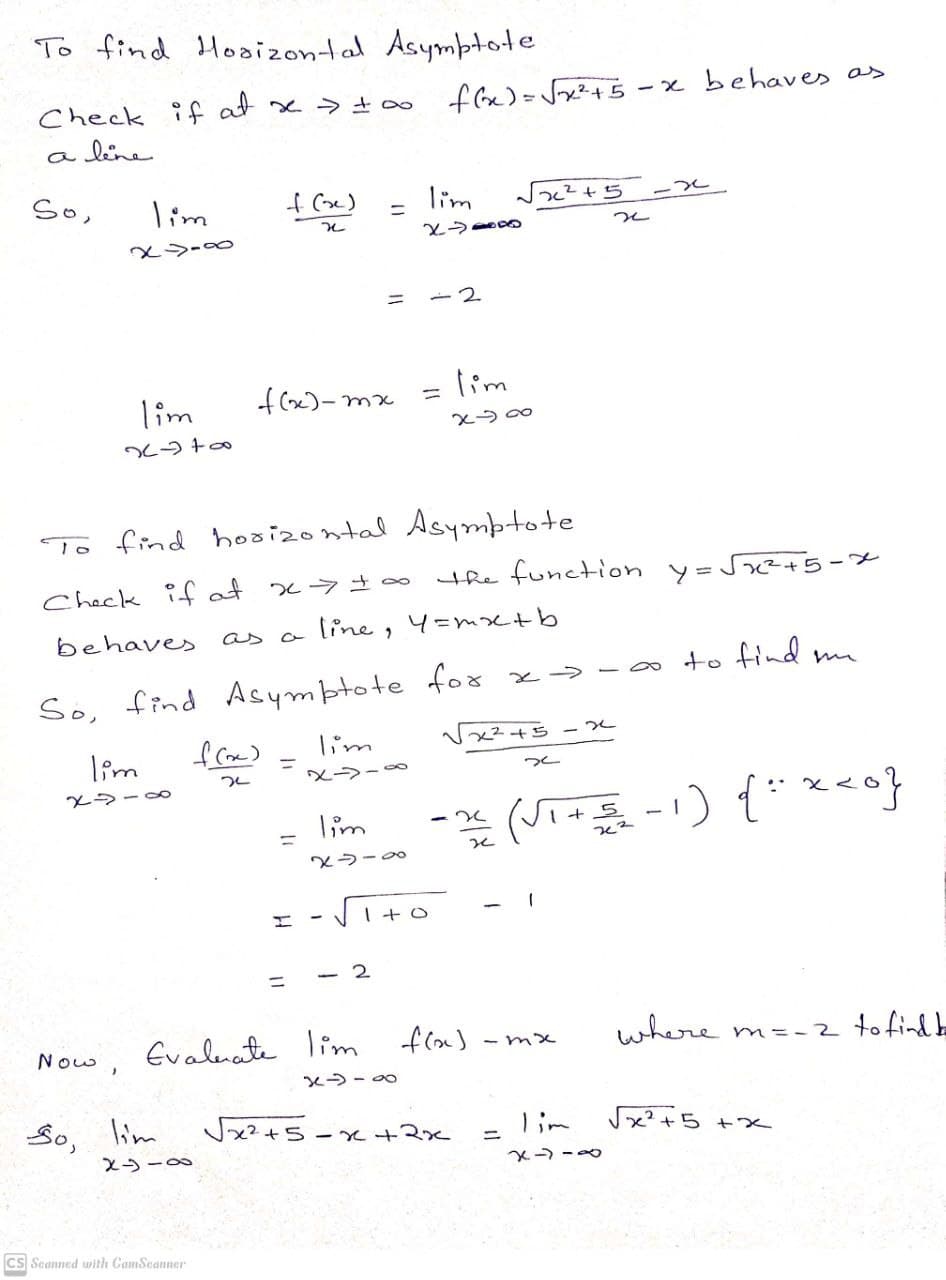 To find Horizontal Asymptote
Check if at x → ±∞ f(x) = √x²+5 - x behaves as
a line
So, lim x→-∞ f(x)/x = lim x→∞ (√x²+5 - x)/x
= -2
lim x→+∞ f(x) - mx = lim x→∞
To find horizontal Asymptote
Check if at x → ±∞ the function y = √x²+5 - x
behaves as a line, y = mx + b
So, find Asymptote for x → -∞ to find m
lim x→-∞ f(x)/x = lim x→-∞ (√x²+5 - x)/x
= lim x→-∞ -x/x (√1 + 5/x² - 1) {∵ x < 0}
= -√1+0 - 1
= -2
Now, Evaluate lim x→-∞ f(x) - mx where m = -2 to find b
So, lim x→-∞ √x²+5 - x + 2x = lim x→-∞ √x²+5 + x
CS Scanned with CamScanner